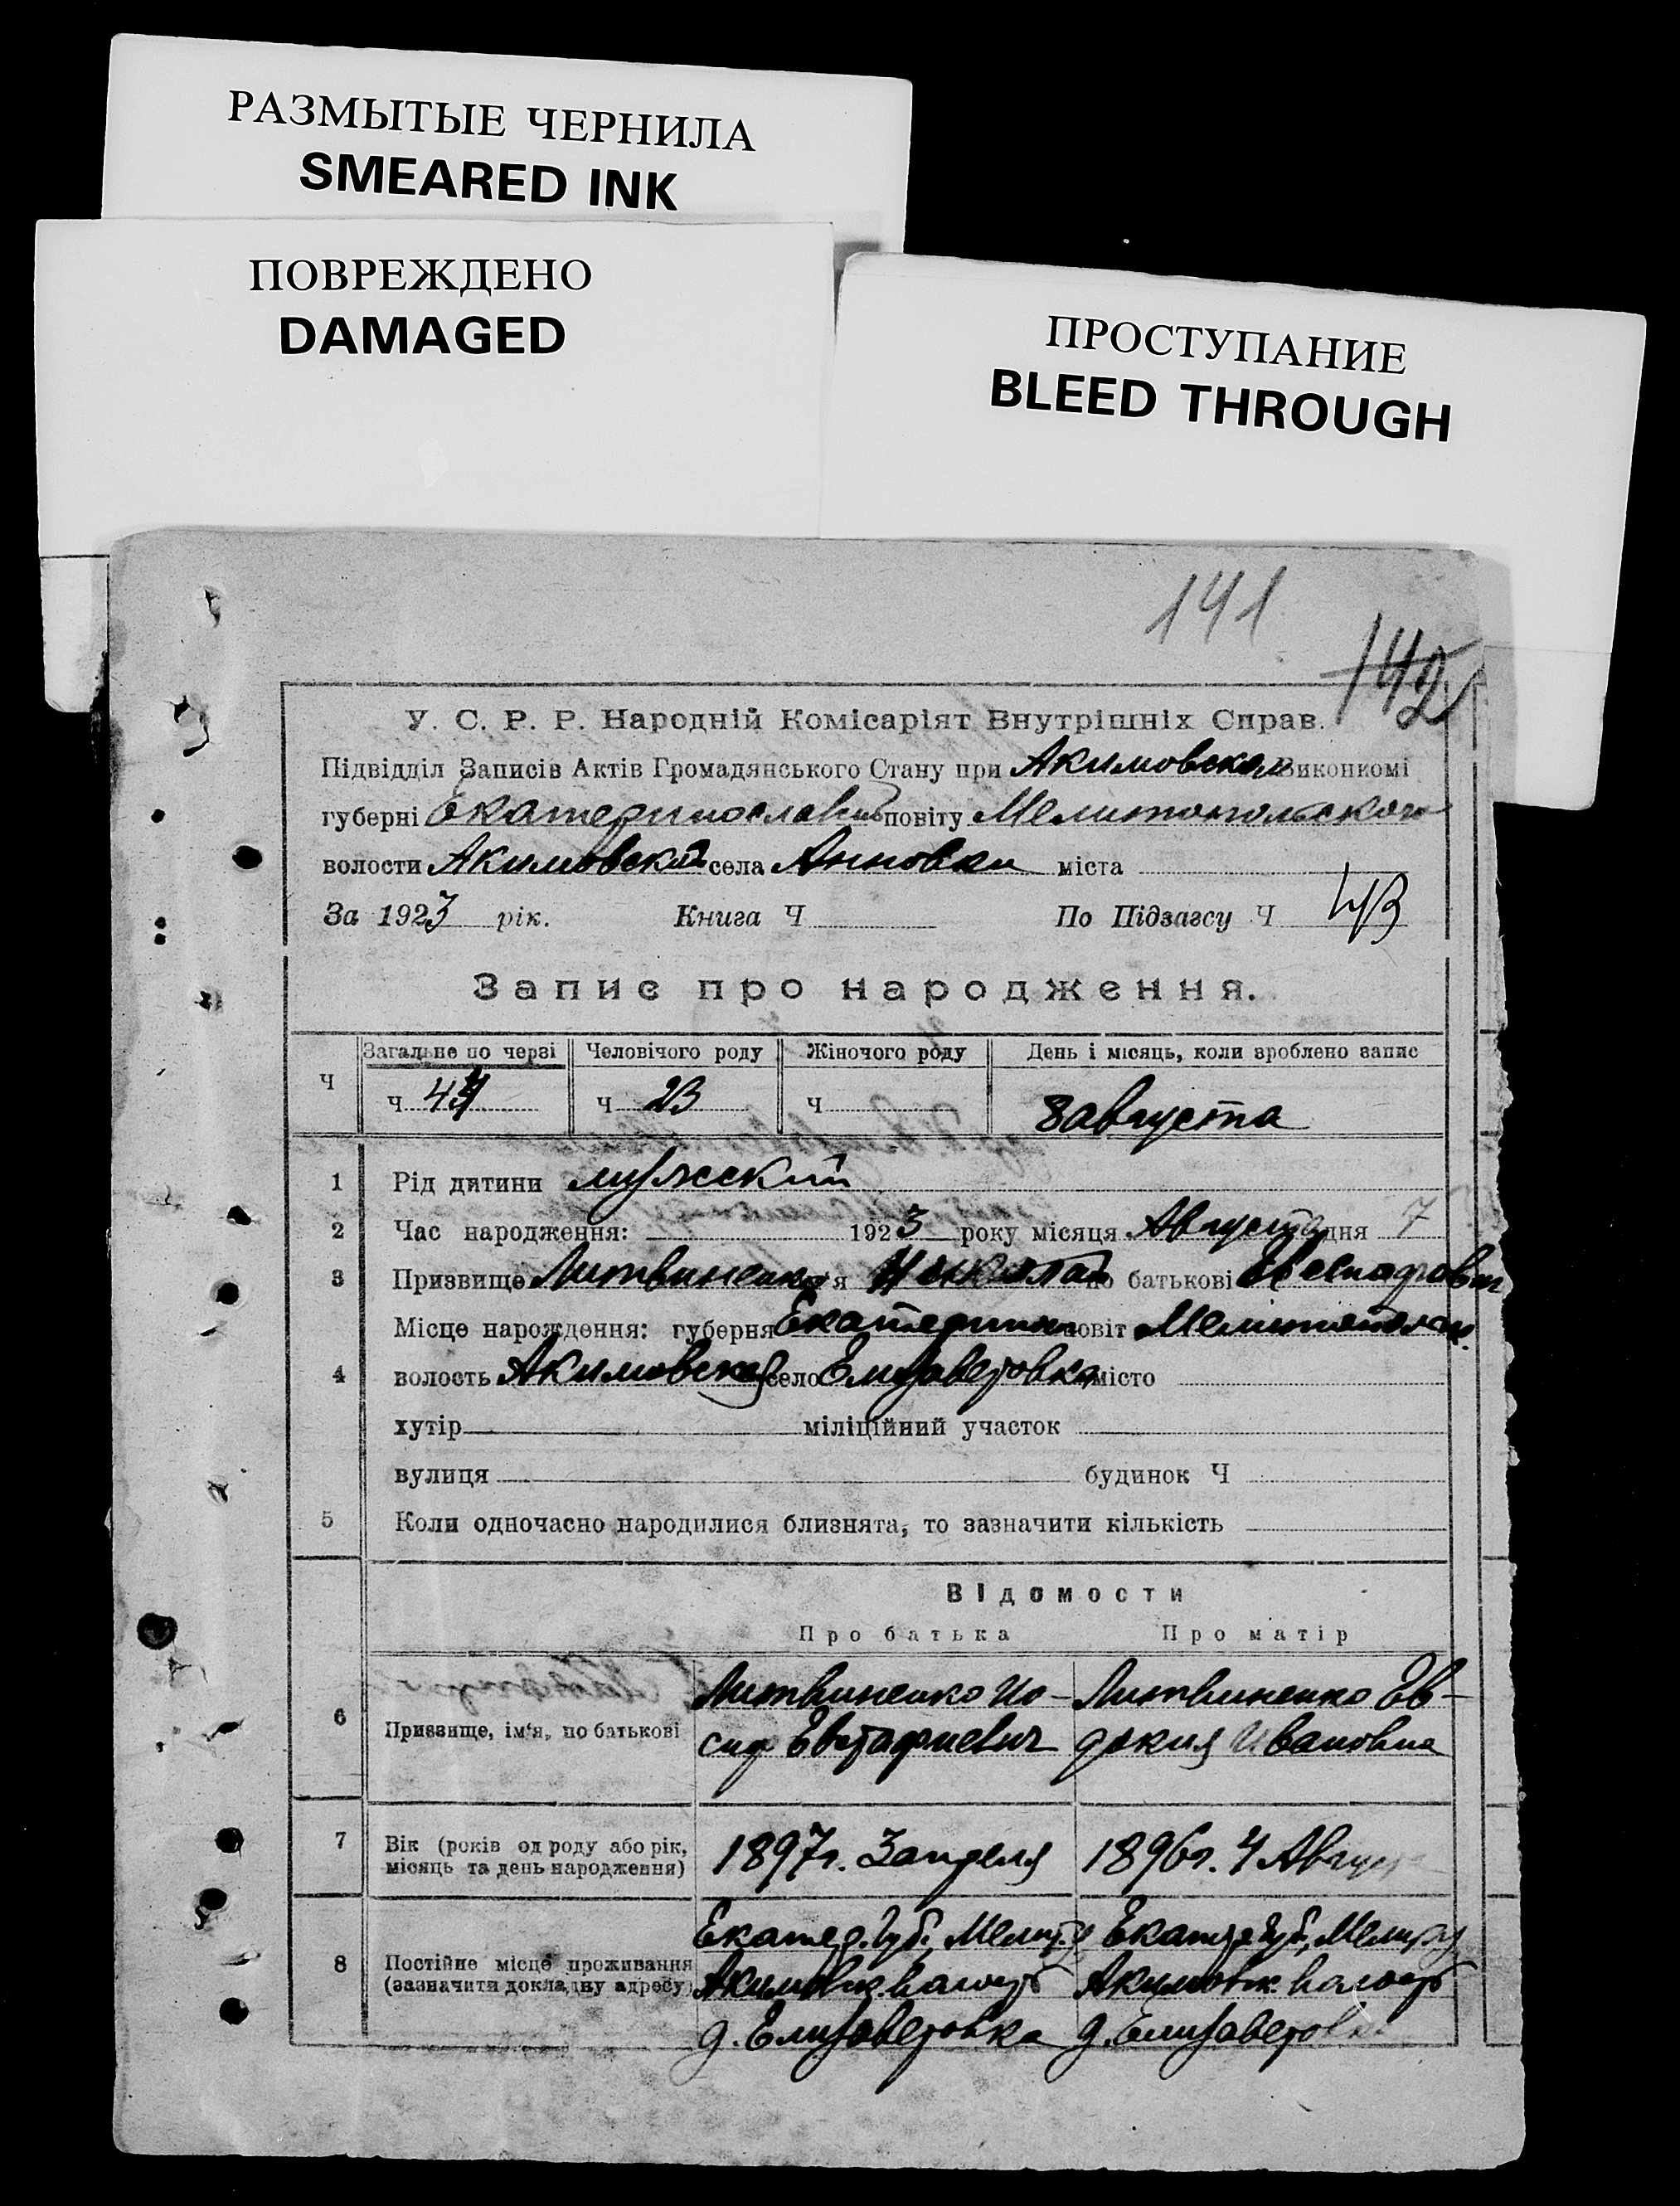 РАЗМЫТЫЕ ЧЕРНИЛА
SMEARED INK
ПОВРЕЖДЕНО
DAMAGED
ПРОСТУПАНИЕ
BLEED THROUGH
141
142
У. С. Р. Р. Народній Комісаріят Внутрішніх Справ.
Підвідділ Записів Актів Громадянського Стану при Акимовском Виконкомі
губерні Екатеринославск повіту Мелитопольского
волости Акимовской села Анновки міста
За 1923 рік. Книга Ч По Підзагсу Ч
Запис про народження.
Загальне по черзі Человічого роду Жіночого роду День і місяць, коли зроблено запис
Ч Ч Ч 23 Ч 8 августа
1 Рід дитини мужский
2 Час народження: 1923 року місяця Августа дня 7
3 Призвище Литвиненко м'я Николай по батькові
Місце нарождення: губерня Екатеринос повіт Мелитопольск.
4 волость Акимовской село Елизаветовка місто
хутір міліційний участок
вулиця будинок Ч
5 Коли одночасно народилися близнята, то зазначити кількість
Відомости
Про батька Про матір
6 Призвище, ім'я, по батькові Литвиненко Ио- Литвиненко Ев-
сиф Евстафиевич докия Ивановна
7 Вік (років од роду або рік, місяць та день народження) 1897г. 3 апреля 1896г. 4 Августа
8 Постійне місце проживання (зазначити докладну адресу) Екатер. губ., Мелит. у Екатер губ, Мелит у
Акимовск. волость Акимовск. волость
д. Елизаветовка д. Елизаветовка